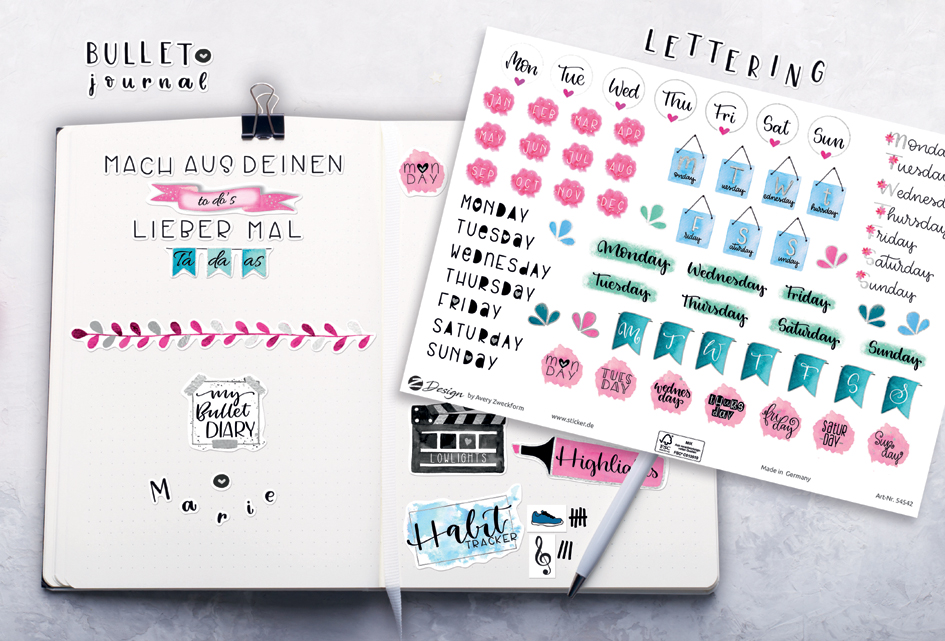 BULLET
journal
LETTERING
MACH AUS DEINEN
to do's
LIEBER MAL
Ta da as
my
Bullet
DIARY
Marie
MON
DAY
LOWLIGHTS
Highlights
Habit
TRACKER
Mon Tue Wed Thu Fri Sat Sun
JAN FEB MAR APR
MAY JUN JUL AUG
SEP OCT NOV DEC
Monday Tuesday Wednesday Thursday
Friday Saturday Sunday
Monday
Tuesday
Wednesday
Thursday
Friday
Saturday
Sunday
MONDAY
TUESDAY
WEDNESDAY
THURSDAY
FRIDAY
SATURDAY
SUNDAY
Monday Wednesday Friday
Tuesday Thursday Saturday Sunday
M T W T F S S
MON
DAY
TUES
DAY
wednes
day
THURS
DAY
friday
SATUR
DAY
Sunday
Z Design by Avery Zweckform
www.sticker.de
FSC
MIX
Made in Germany
Art-Nr. 54542